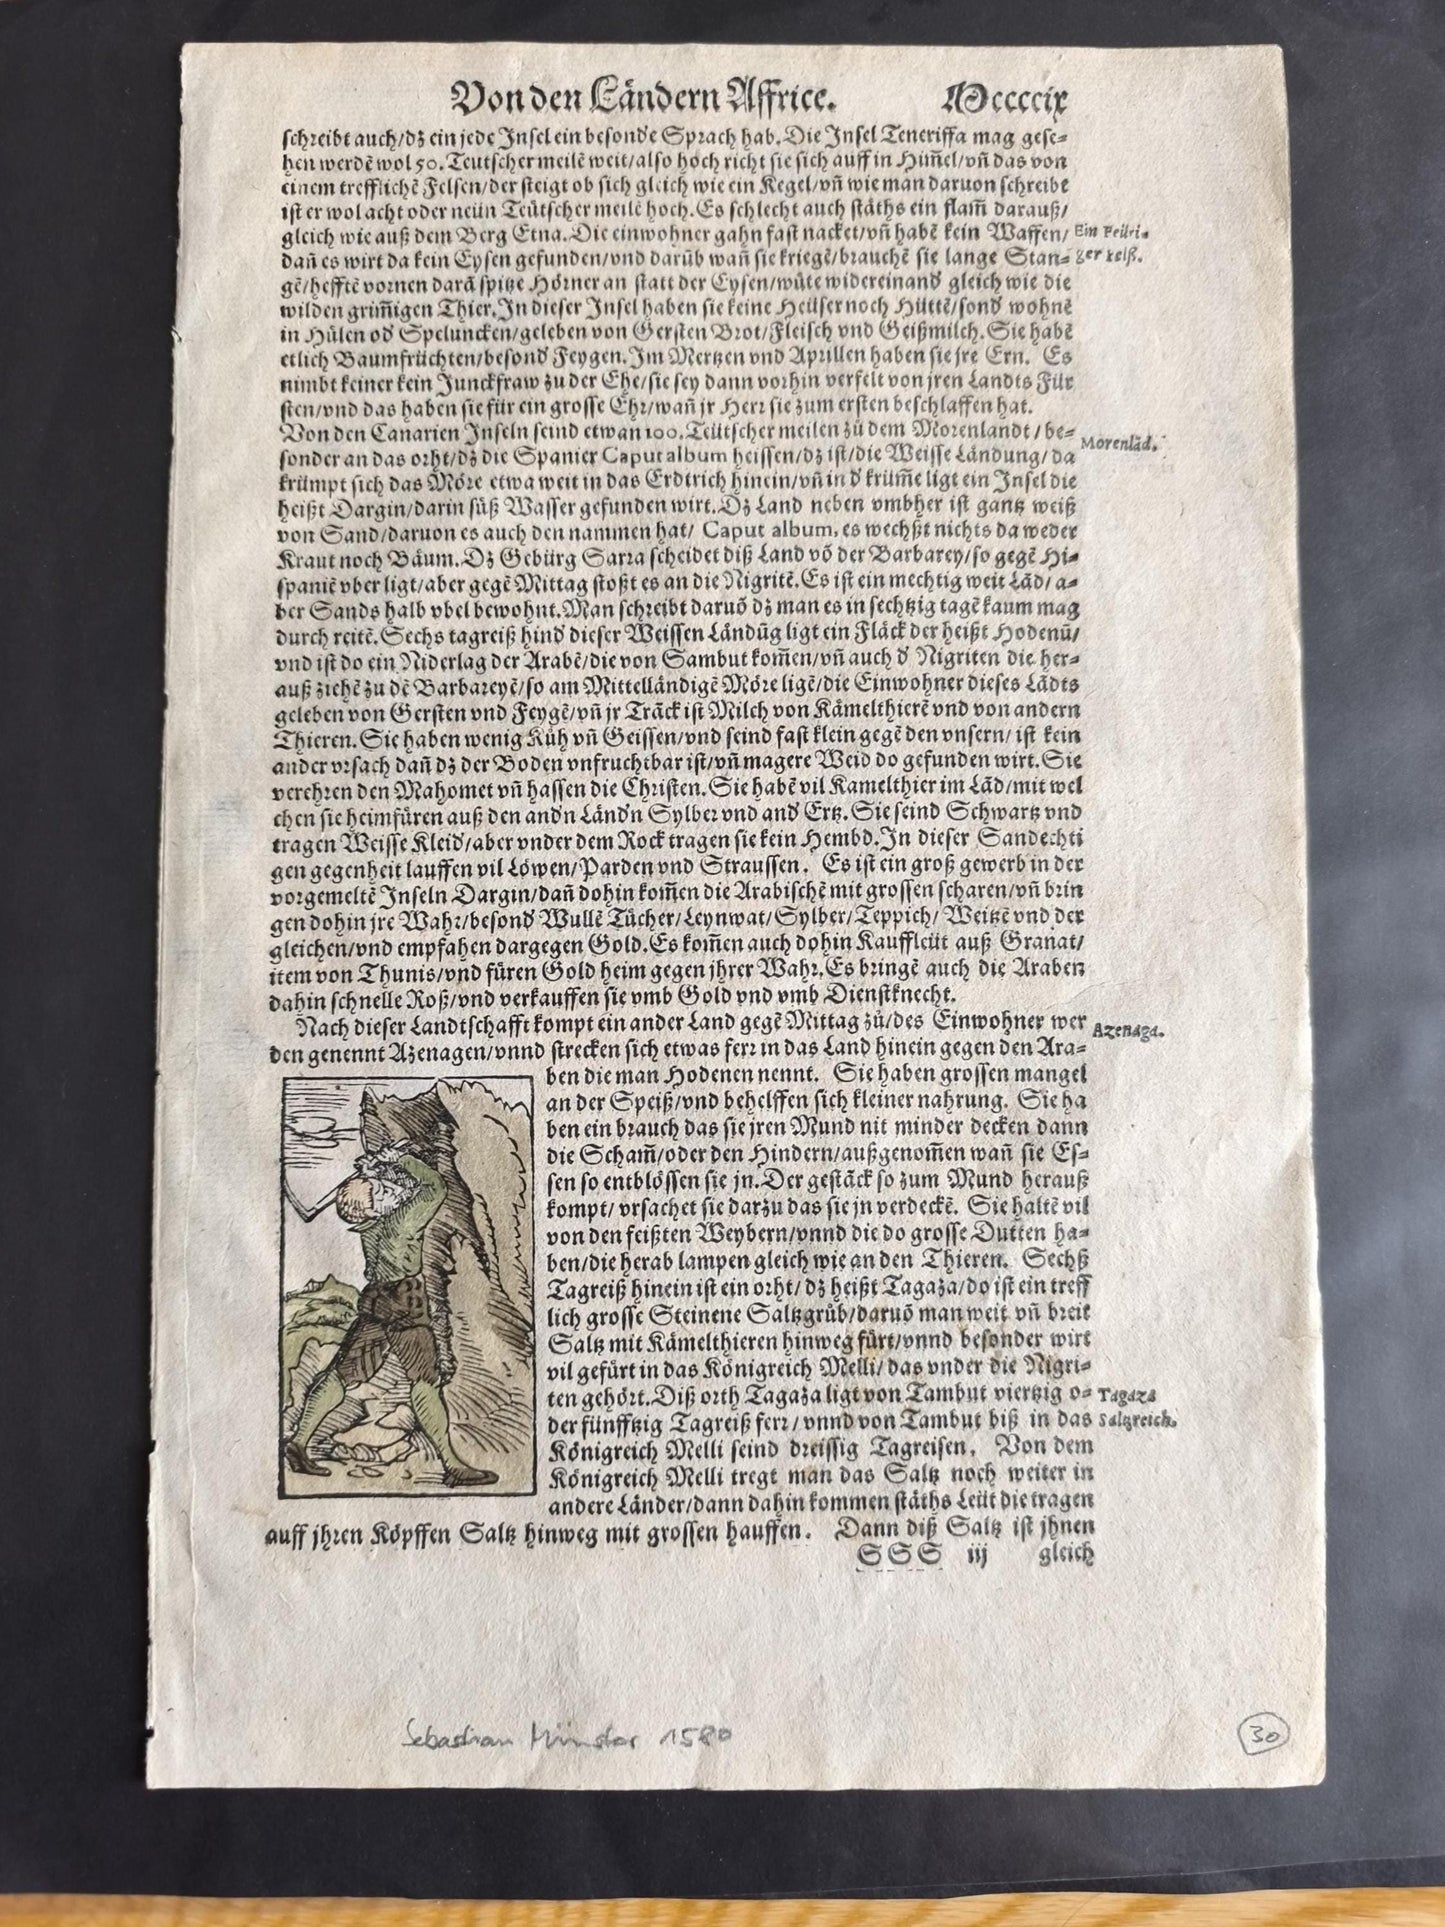 Von den Ländern Affrice. Mccccix
schreibt auch/dz ein jede Insel ein besonde Sprach hab. Die Insel Teneriffa mag gese=
hen werdẽ wol 50. Teutscher meilẽ weit/also hoch richt sie sich auff in Him̃el/vñ das von
einem trefflichẽ Felsen/der steigt ob sich gleich wie ein Kegel/vñ wie man daruon schreibt
ist er wol acht oder neün Teütscher meilẽ hoch. Es schlecht auch stäths ein flam̃ darauß/
gleich wie auß dem Berg Etna. Die einwohner gahn fast nacket/vñ habẽ kein Waffen/
Ein feüri=
dañ es wirt da kein Eysen gefunden/vnd darüb wañ sie kriegẽ/brauchẽ sie lange Stan=
ger felß.
gẽ/hefftẽ vornen darã spitze Hörner an statt der Eysen/wütẽ widereinand gleich wie die
wilden grim̃igen Thier. In dieser Insel haben sie keine Heüser noch Hüttẽ/sond wohnẽ
in Hülen od Speluncken/geleben von Gersten Brot/Fleisch vnd Geißmilch. Sie habẽ
etlich Baumfrüchten/besond Feygen. Im Mertzen vnd Aprillen haben sie jre Ern. Es
nimbt keiner kein Junckfraw zu der Ehe/sie sey dann vorhin verfelt von jren Landts Für
sten/vnd das haben sie für ein grosse Ehr/wañ jr Herr sie zum ersten beschlaffen hat.
Von den Canarien Inseln seind etwan 100. Teütscher meilen zů dem Morenlandt/be=
Morenlãd.
sonder an das orht/dz die Spanier Caput album heissen/dz ist/die Weisse Ländung/da
krümpt sich das Möre etwa weit in das Erdtrich hinein/vñ in d krüm̃e ligt ein Insel die
heißt Dargin/darin süß Wasser gefunden wirt. Dz Land neben vmbher ist gantz weiß
von Sand/daruon es auch den nammen hat/ Caput album, es wechßt nichts da weder
Kraut noch Bäum. Dz Gebürg Sarra scheidet diß Land võ der Barbarey/so gegẽ Hi=
spaniẽ vber ligt/aber gegẽ Mittag stoßt es an die Nigritẽ. Es ist ein mechtig weit Lãd/a=
ber Sands halb vbel bewohnt. Man schreibt daruõ dz man es in sechtzig tagẽ kaum mag
durch reitẽ. Sechs tagreiß hind dieser Weissen Ländũg ligt ein Fläck der heißt Hodenũ/
vnd ist do ein Niderlag der Arabẽ/die von Sambut kom̃en/vñ auch d Nigriten die her=
auß ziehẽ zu dẽ Barbareyẽ/so am Mittelländigẽ Möre ligẽ/die Einwohner dieses Lãdts
geleben von Gersten vnd Feygẽ/vñ jr Trãck ist Milch von Kämelthierẽ vnd von andern
Thieren. Sie haben wenig Küh vñ Geissen/vnd seind fast klein gegẽ den vnsern/ ist kein
ander vrsach dañ dz der Boden vnfruchtbar ist/vñ magere Weid do gefunden wirt. Sie
verehren den Mahomet vñ hassen die Christen. Sie habẽ vil Kamelthier im Lãd/mit wel
chen sie heimfüren auß den andn Ländn Sylber vnd and Ertz. Sie seind Schwartz vnd
tragen Weisse Kleid/aber vnder dem Rock tragen sie kein Hembd. In dieser Sandechti
gen gegenheit lauffen vil Löwen/Parden vnd Straussen. Es ist ein groß gewerb in der
vorgemeltẽ Inseln Dargin/dañ dohin kom̃en die Arabischẽ mit grossen scharen/vñ brin
gen dohin jre Wahr/besond Wullẽ Tücher/Leynwat/Sylber/Teppich/ Weitzẽ vnd der
gleichen/vnd empfahen dargegen Gold. Es kom̃en auch dohin Kauffleüt auß Granat/
item von Thunis/vnd füren Gold heim gegen jhrer Wahr. Es bringẽ auch die Araben
dahin schnelle Roß/vnd verkauffen sie vmb Gold vnd vmb Dienstknecht.
Nach dieser Landtschafft kompt ein ander Land gegẽ Mittag zů/des Einwohner wer
Azenaga.
den genennt Azenagen/vnnd strecken sich etwas ferr in das Land hinein gegen den Ara=
ben die man Hodenen nennt. Sie haben grossen mangel
an der Speiß/vnd behelffen sich kleiner nahrung. Sie ha
ben ein brauch das sie jren Mund nit minder decken dann
die Scham̃/oder den Hindern/außgenom̃en wañ sie Es=
sen so entblössen sie jn. Der gestãck so zum Mund herauß
kompt/ vrsachet sie darzu das sie jn verdeckẽ. Sie haltẽ vil
von den feißten Weybern/vnnd die do grosse Dutten ha=
ben/die herab lampen gleich wie an den Thieren. Sechß
Tagreiß hinein ist ein orht/ dz heißt Tagaza/do ist ein treff
lich grosse Steinene Saltzgrůb/daruõ man weit vñ breit
Saltz mit Kämelthieren hinweg fürt/vnnd besonder wirt
vil gefürt in das Königreich Melli/das vnder die Nigri=
ten gehört. Diß orth Tagaza ligt von Tambut viertzig o=
Tagaza
der fünfftzig Tagreiß ferr/ vnnd von Tambut biß in das
Saltzreich.
Königreich Melli seind dreissig Tagreisen. Von dem
Königreich Melli tregt man das Saltz noch weiter in
andere Länder/dann dahin kommen stäths Leüt die tragen
auff jhren Köpffen Saltz hinweg mit grossen hauffen. Dann diß Saltz ist jhnen
SSS iij gleich
Sebastian Münster 1580
30